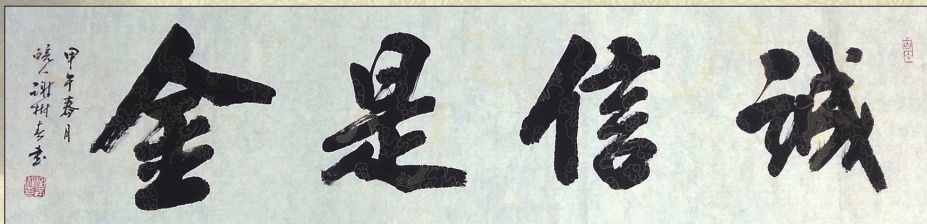 誠信是金
甲午春月
皖人谢樹春书